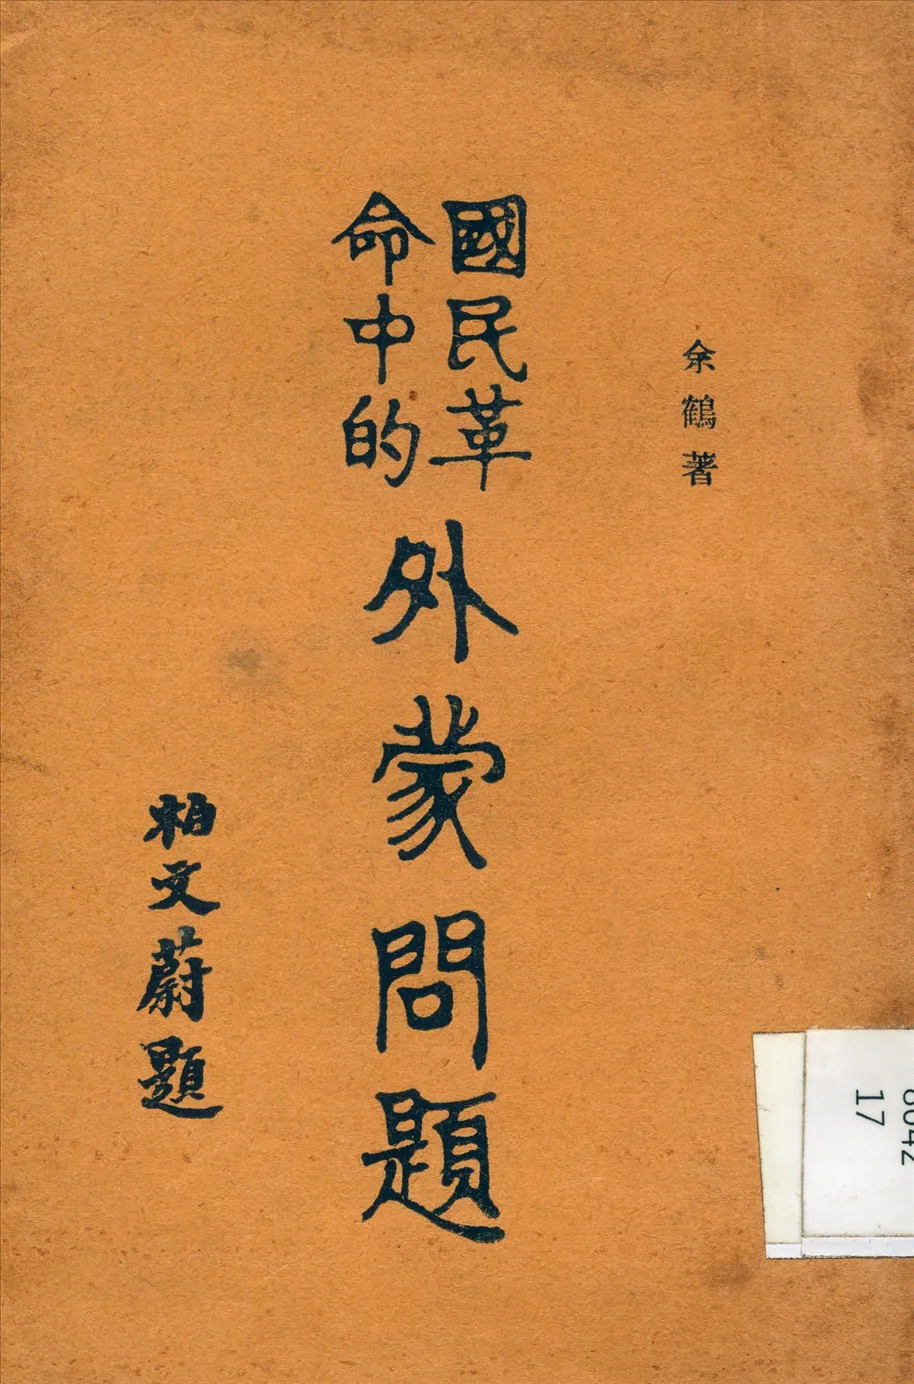 余鶴著
國民革
命中的
外蒙問題
柏文蔚題
8042
17